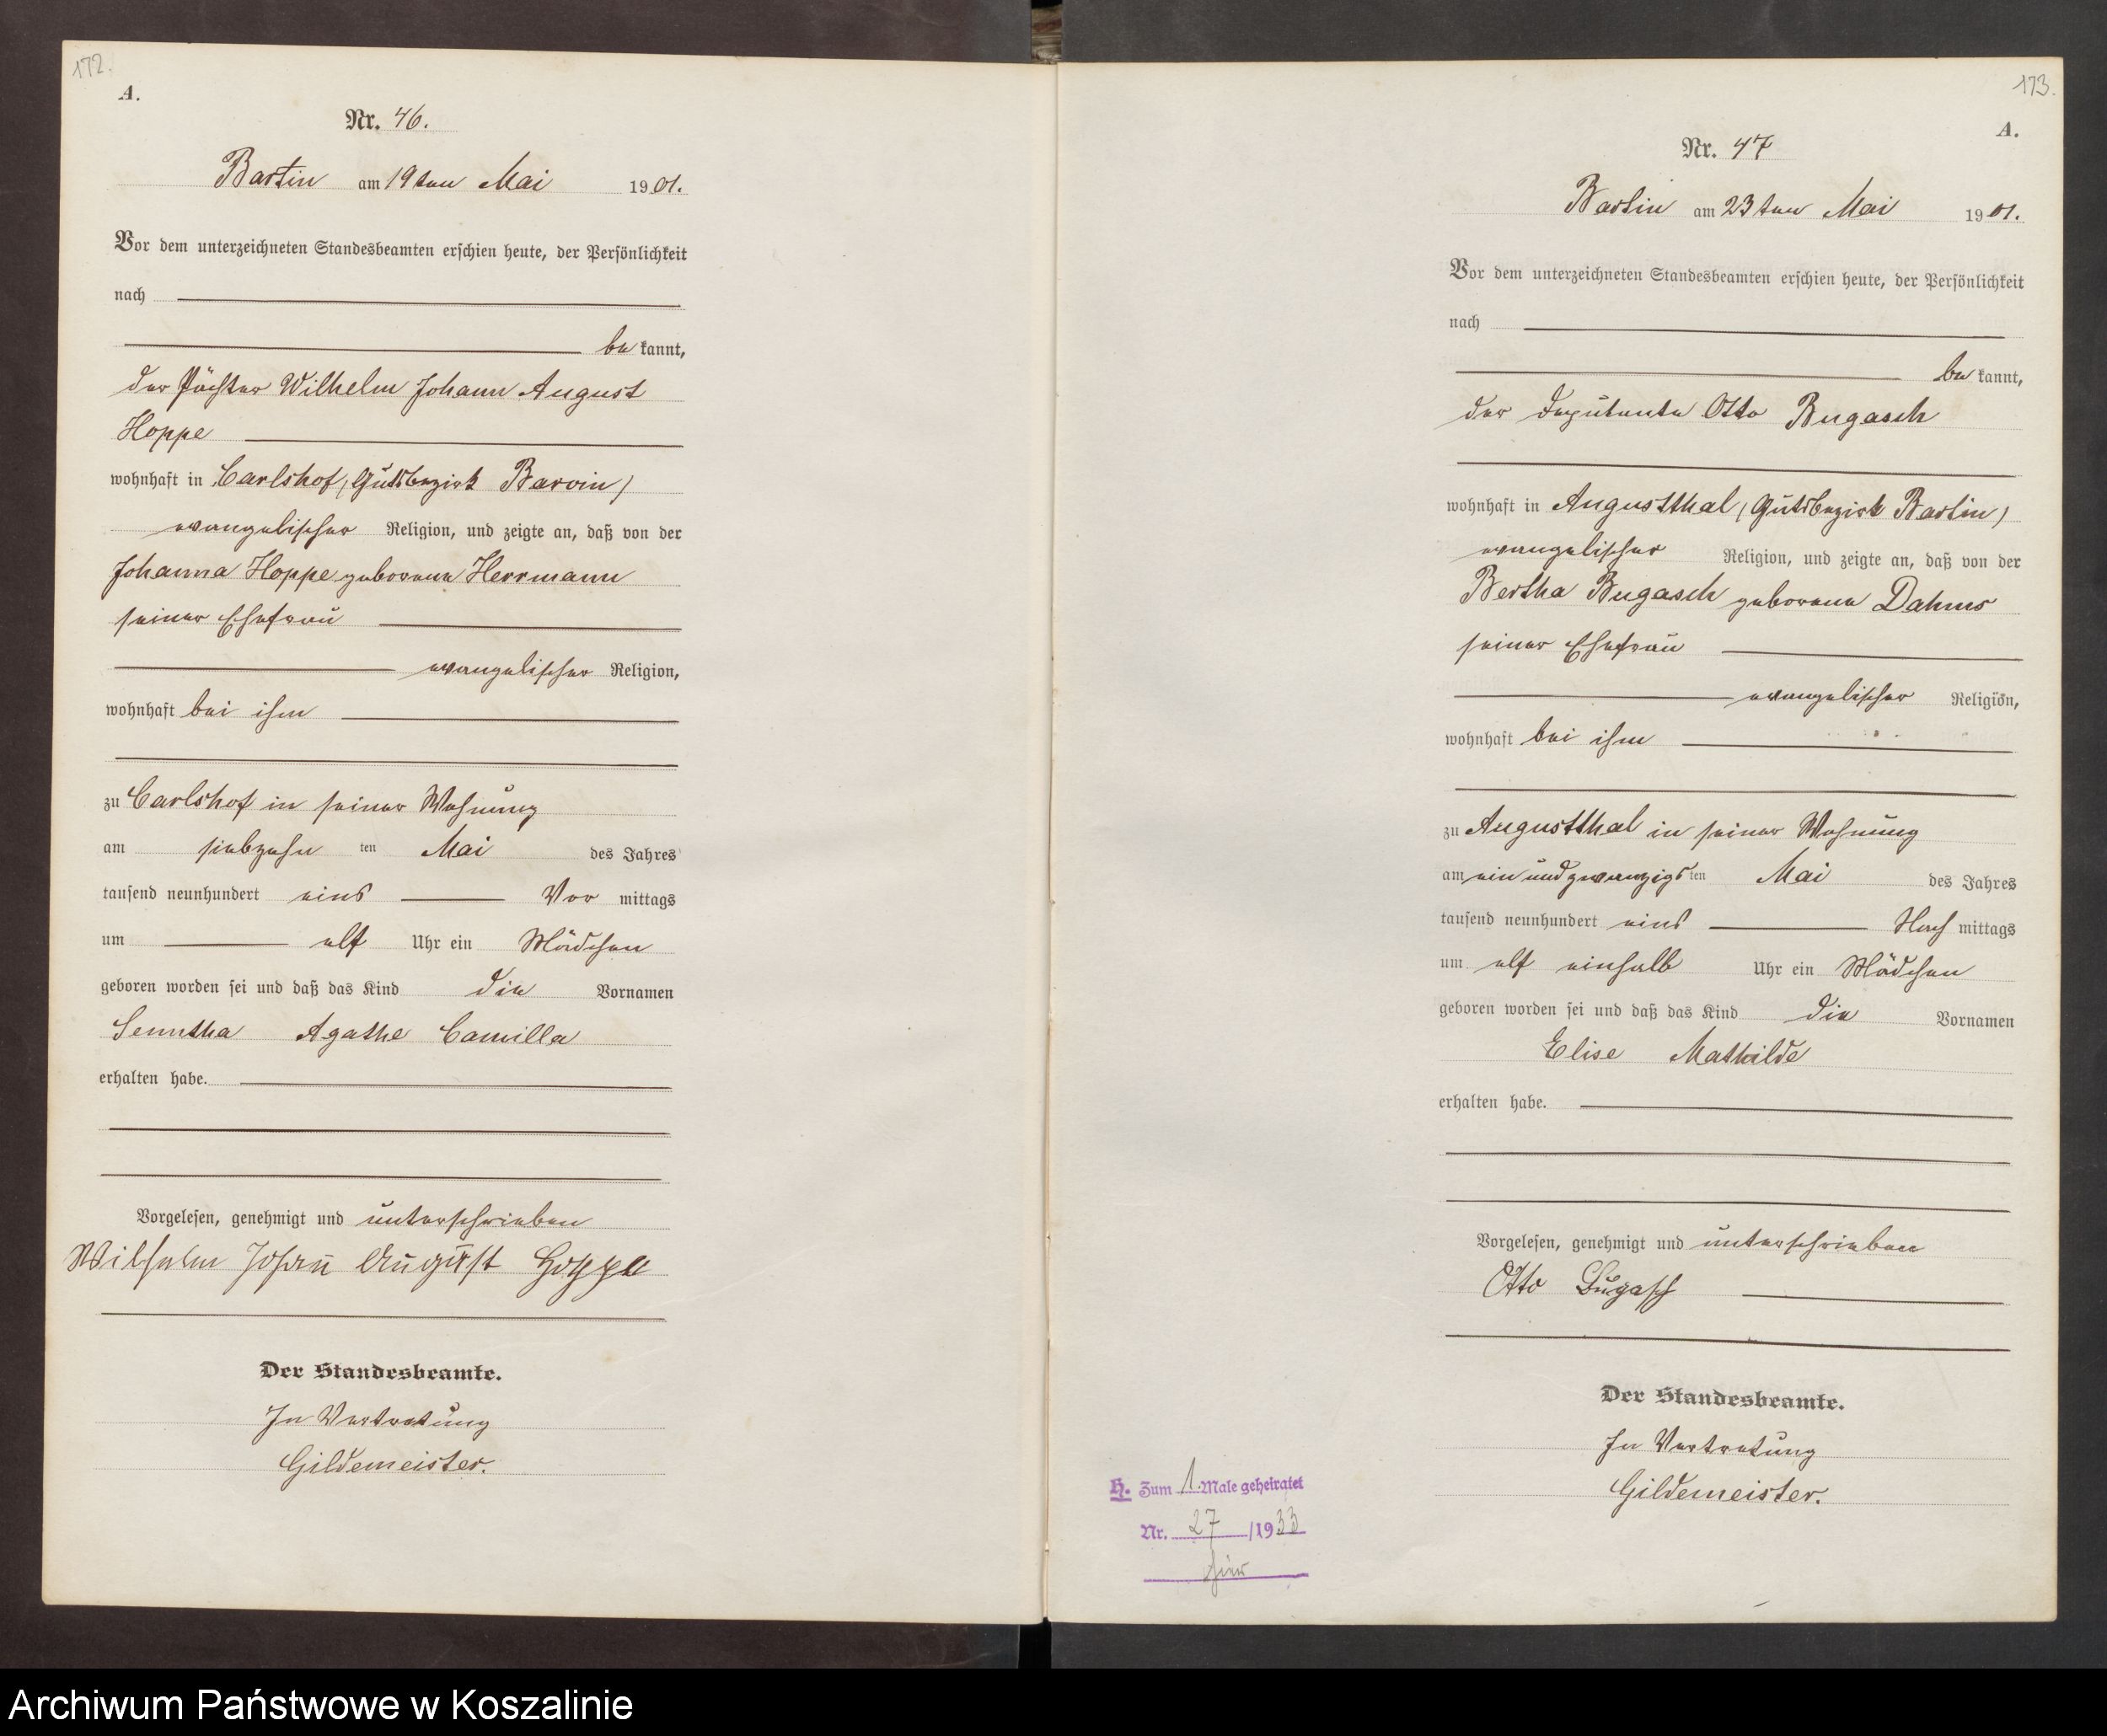 172.
A.
Nr. 46.
Bartin am 19ten Mai 1901.
Vor dem unterzeichneten Standesbeamten erschien heute, der Persönlichkeit
nach
be kannt,
der Pächter Wilhelm Johann August
Hoppe
wohnhaft in Carlshof, (Gutsbezirk Barvin)
evangelischer Religion, und zeigte an, daß von der
Johanna Hoppe geborene Herrmann
seiner Ehefrau
evangelischer Religion,
wohnhaft bei ihm
zu Carlshof in seiner Wohnung
am siebzehn ten Mai des Jahres
tausend neunhundert eins Vor mittags
um elf Uhr ein Mädchen
geboren worden sei und daß das Kind die Vornamen
Agathe Camilla
erhalten habe.
Vorgelesen, genehmigt und unterschrieben
Wilhelm Johann August Hoppe
Der Standesbeamte.
In Vertretung
Gildemeister.
173.
A.
Nr. 47
Bartin am 23ten Mai 1901.
Vor dem unterzeichneten Standesbeamten erschien heute, der Persönlichkeit
nach
be kannt,
der Deputante Otto Bugasch
wohnhaft in Augustthal, (Gutsbezirk Bartin)
evangelischer Religion, und zeigte an, daß von der
Bertha Bugasch geborene Dahms
seiner Ehefrau
evangelischer Religion,
wohnhaft bei ihm
zu Augustthal in seiner Wohnung
am ein und zwanzigs ten Mai des Jahres
tausend neunhundert eins Nach mittags
um elf einhalb Uhr ein Mädchen
geboren worden sei und daß das Kind die Vornamen
Elise Mathilde
erhalten habe.
Vorgelesen, genehmigt und unterschrieben
Otto Bugasch
Der Standesbeamte.
In Vertretung
Gildemeister.
H. Zum 1. Male geheiratet
Nr. 27 /1933
hier
Archiwum Państwowe w Koszalinie